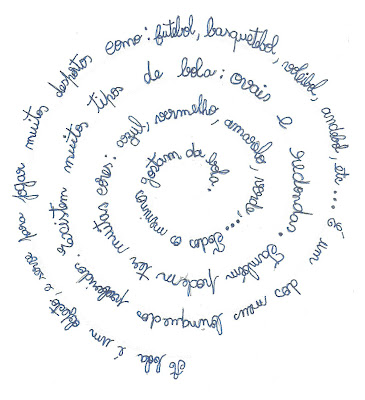 A bola é um objeto, e serve para jogar muitos desportos como: futebol, basquetebol, voleibol, andebol, etc.... É um dos meus brinquedos preferidos. existem muitos tipos de bola: ovais e redondas. Também podem ter muitas cores: azul, vermelho, amarelo, verde.... Todos o meninos gostam da bola.